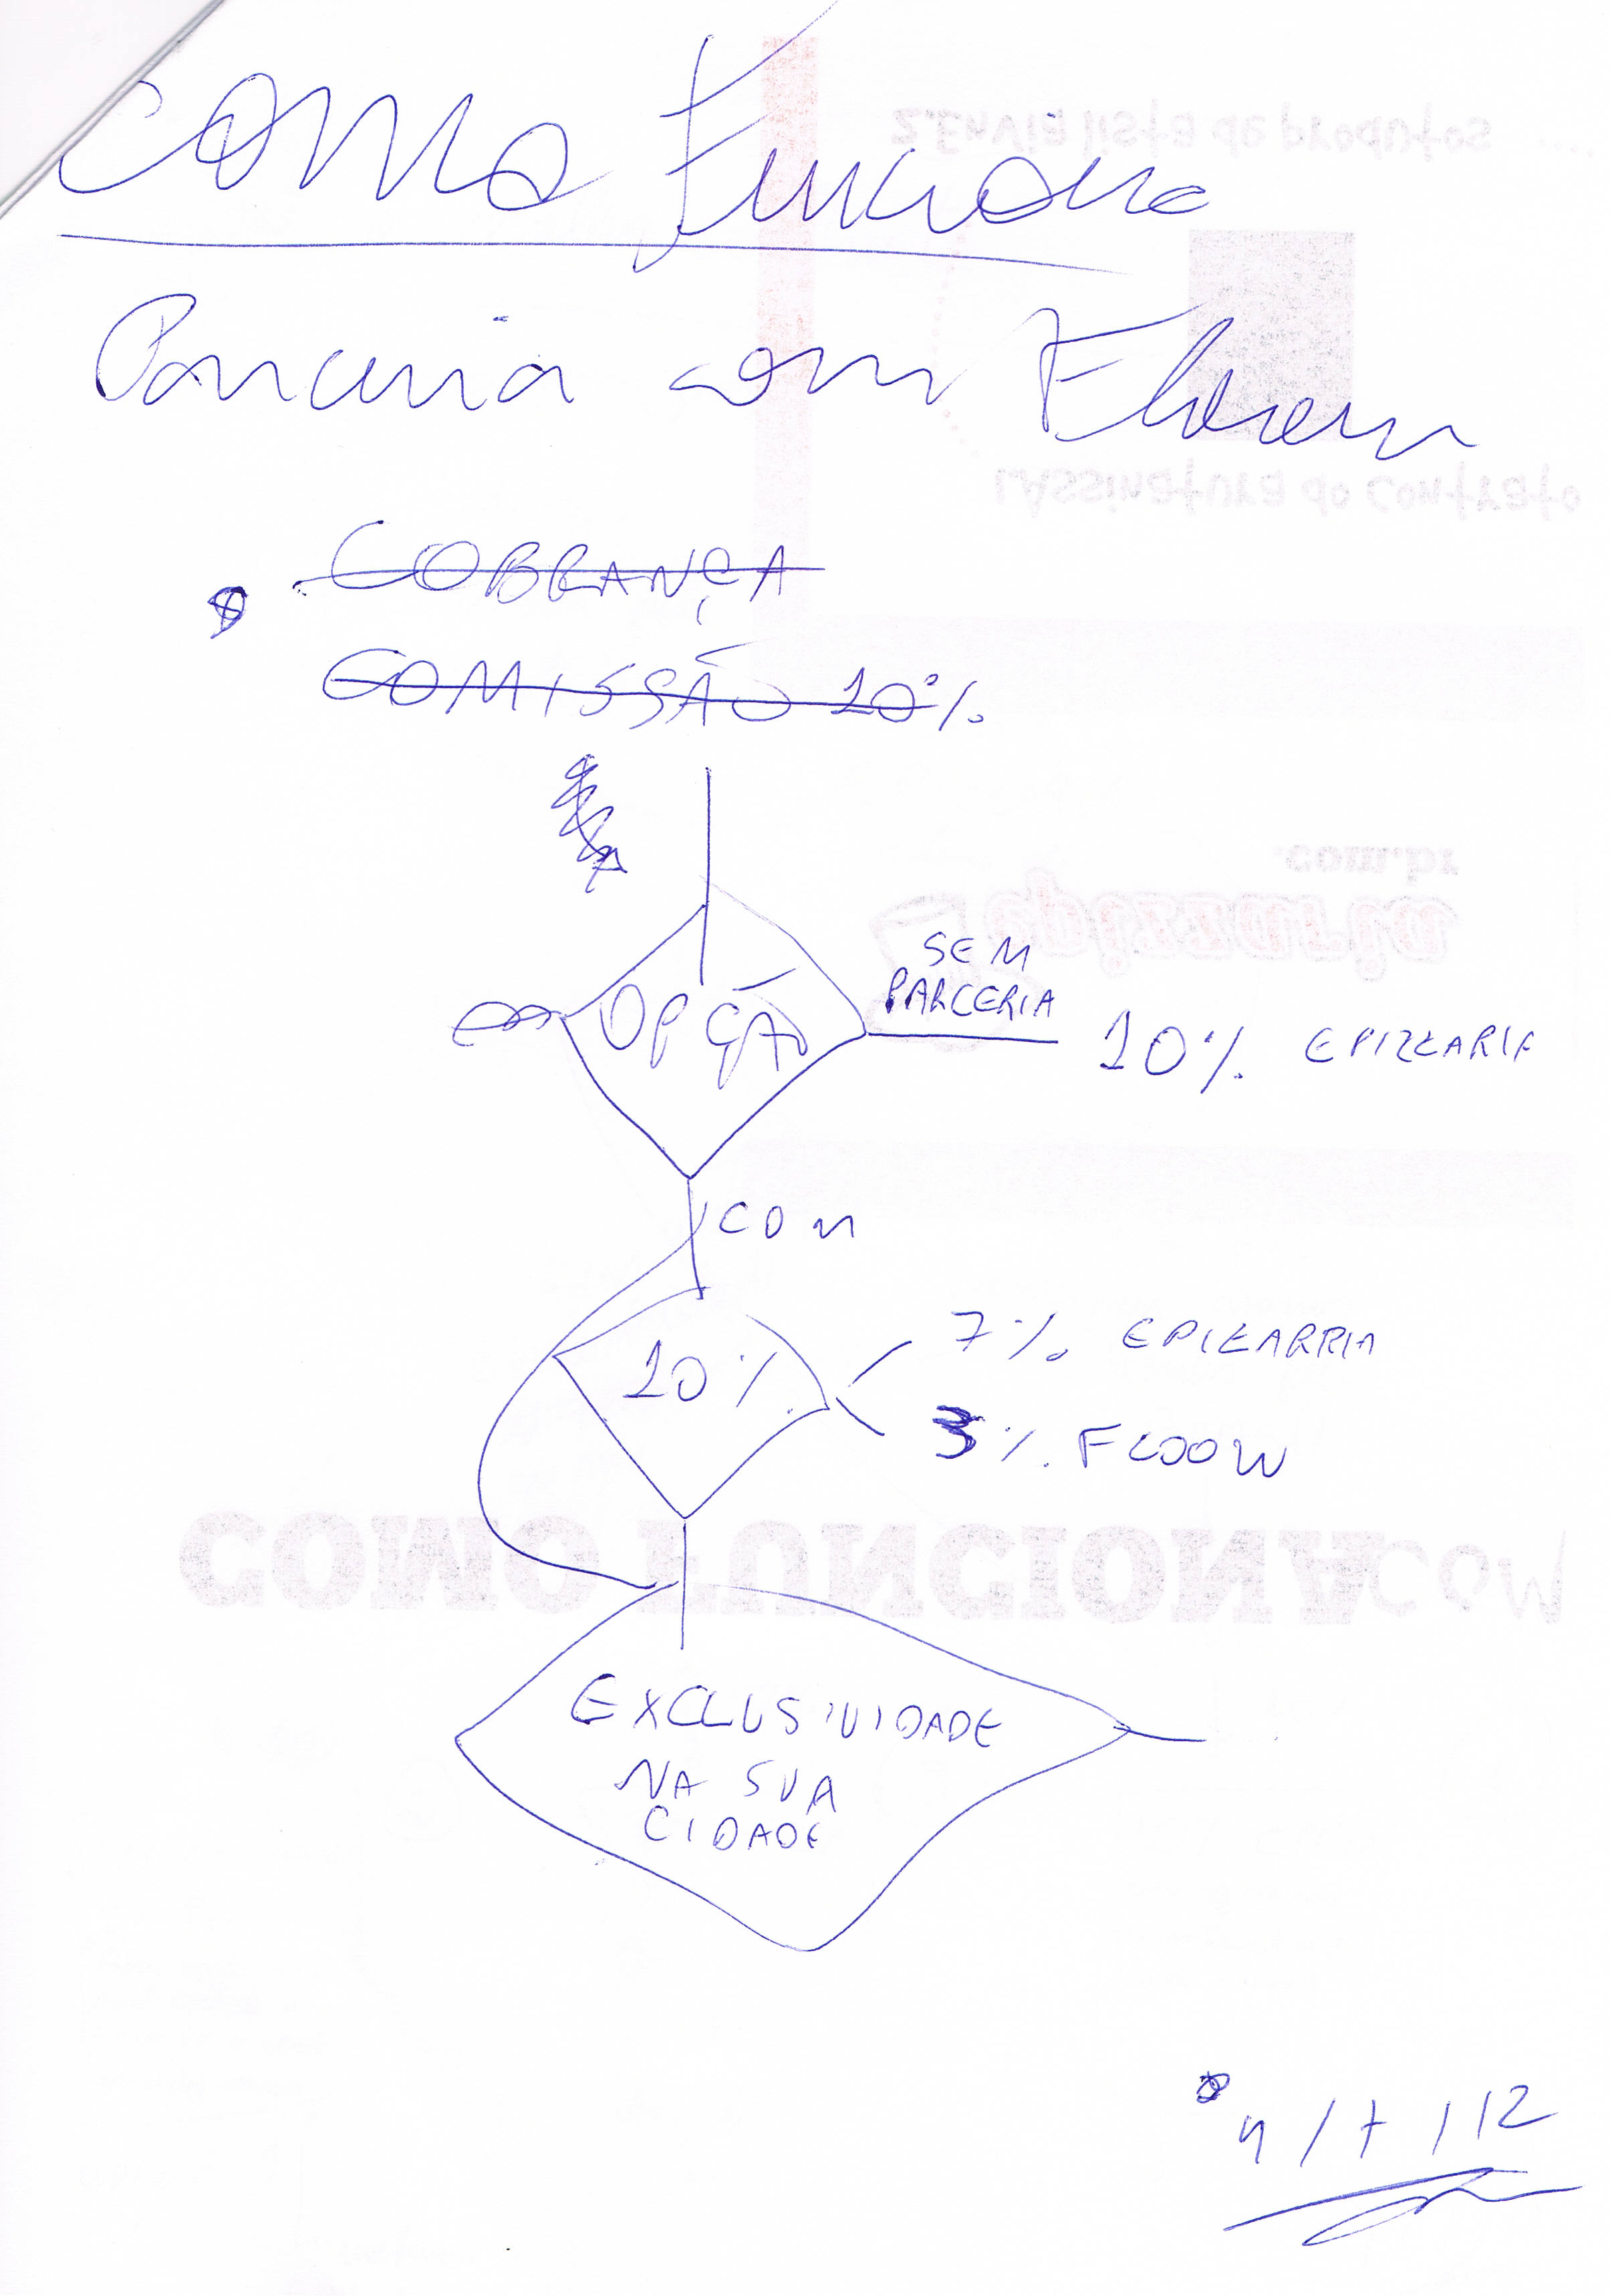 Como Funciona
Parceria com
COBRANÇA
COMISSÃO 10%
OPÇÃO
SEM
PARCERIA
10% EPIZZARIA
COM
10%
7% EPIZARRIA
3% FLOOW
EXCLUSIVIDADE
NA SUA
CIDADE
/ 7 / 12
2.Envia lista de produtos
1.Assinatura do contrato
COMO FUNCIONA